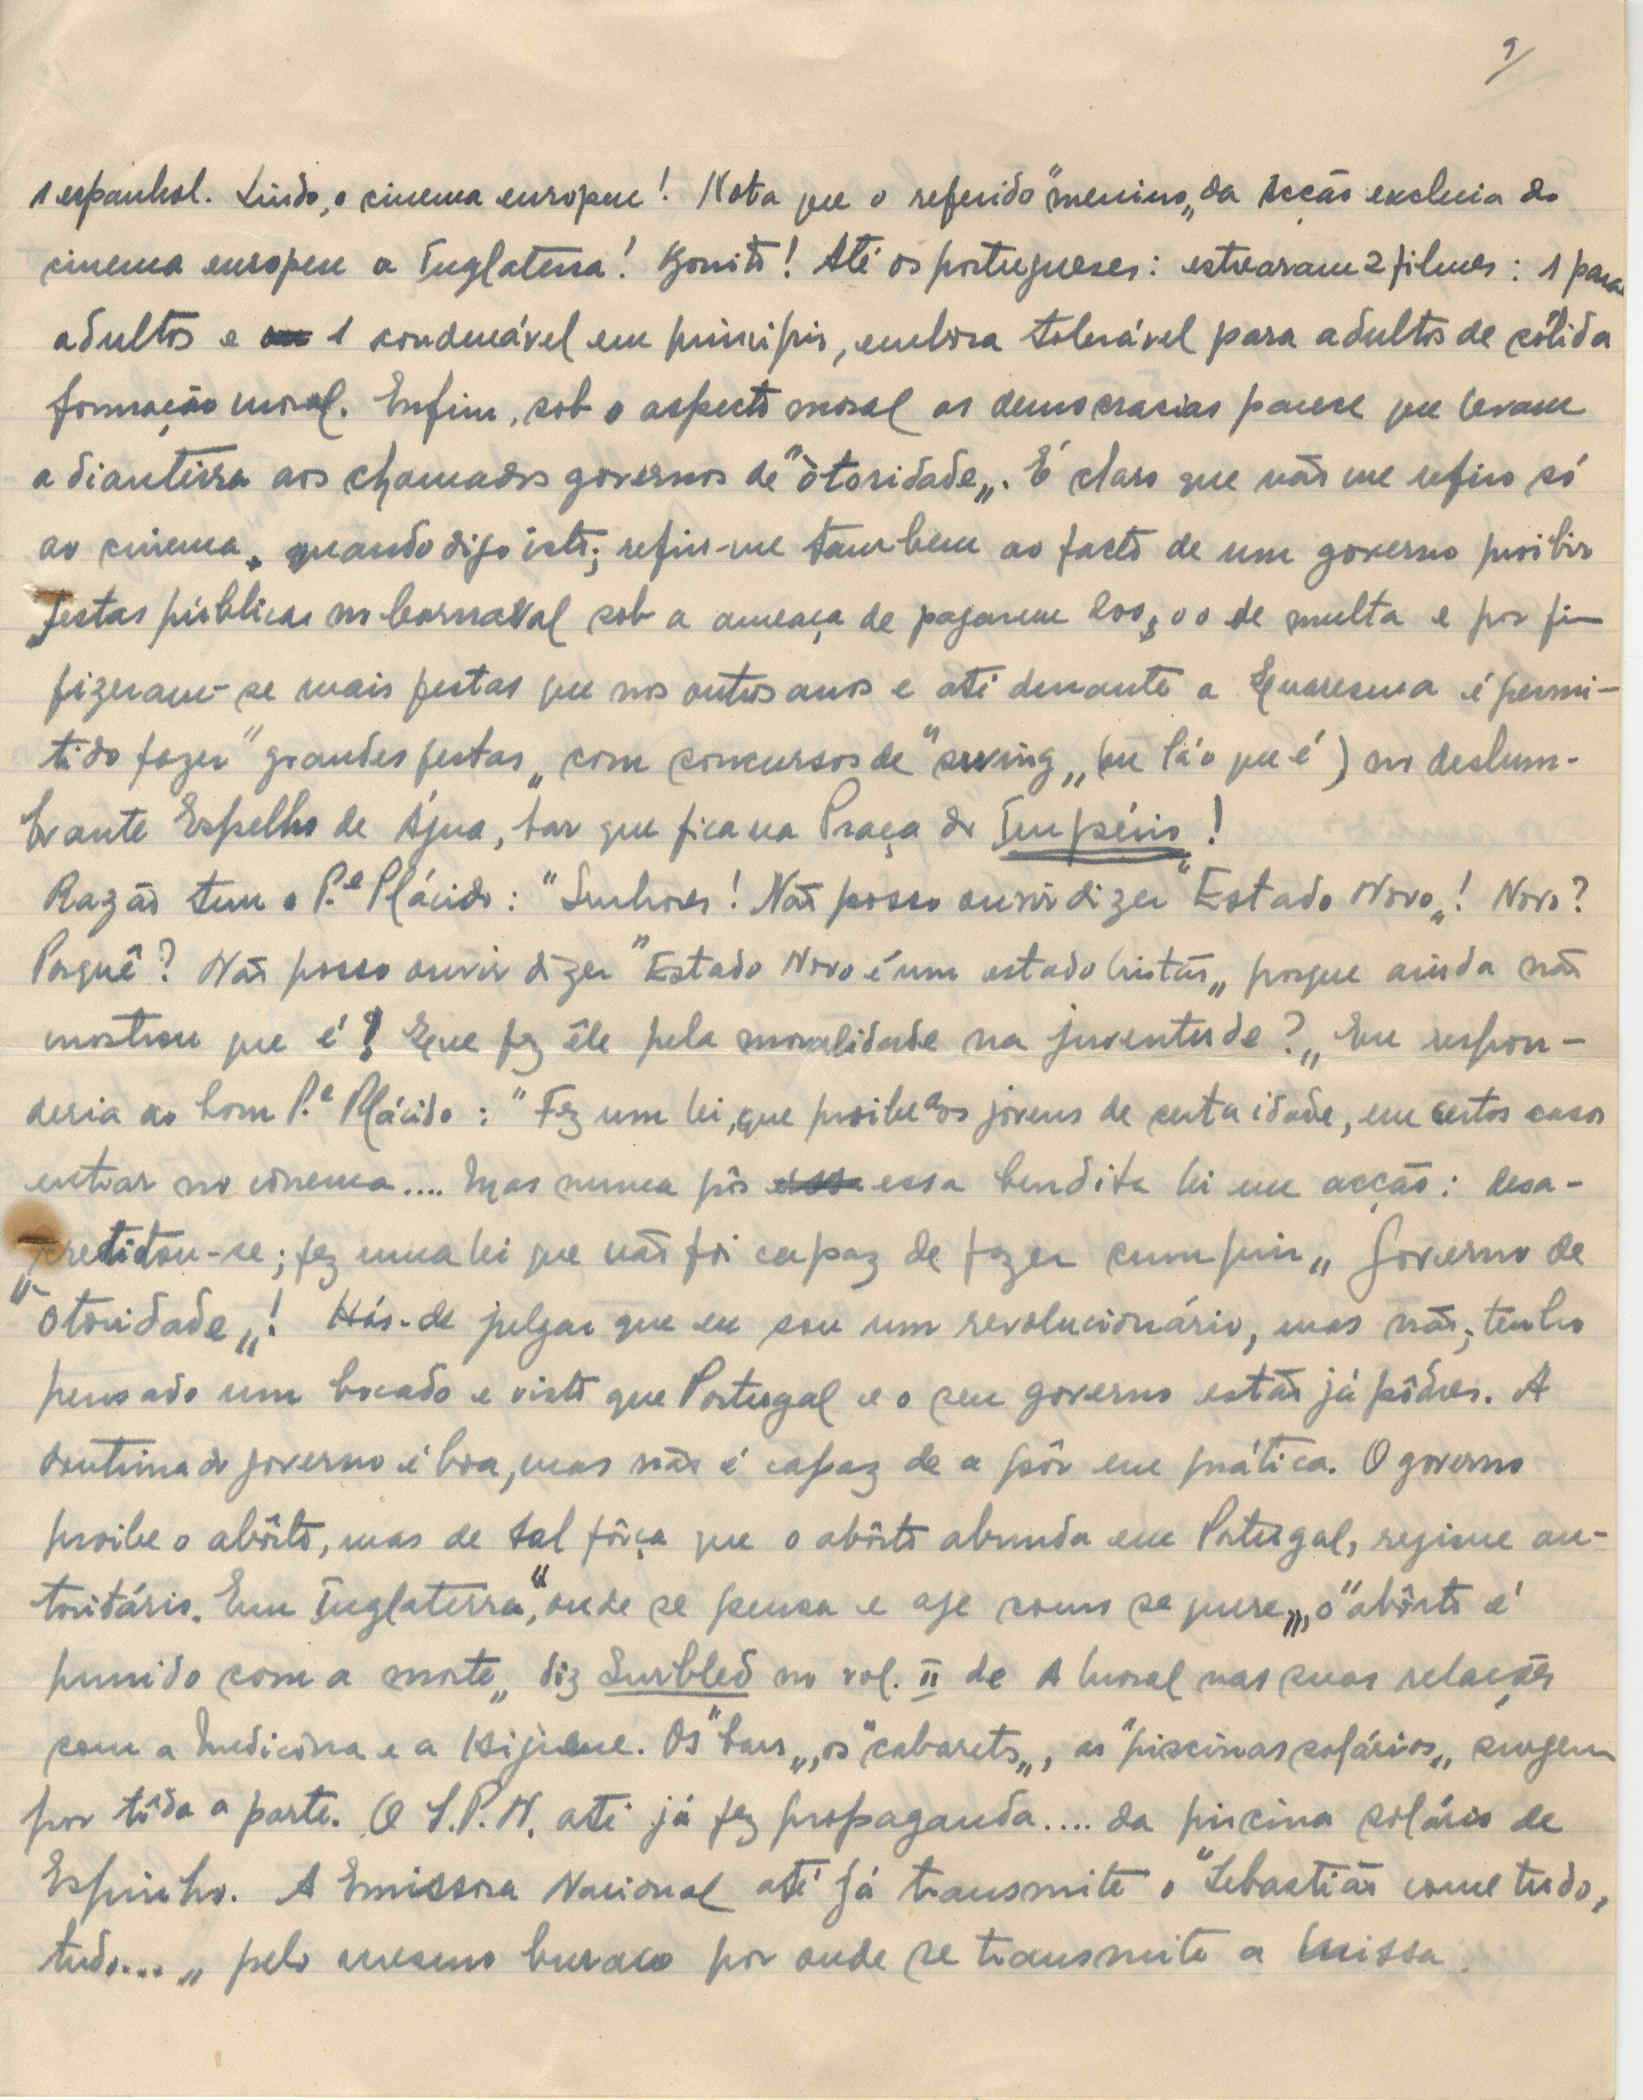 9/
1 espanhol. Lindo, o cinema europeu! Nota que o referido "menino„ da Acção excluia do
cinema europeu a Inglaterra! Bonito! Até os portugueses: estrearam 2 filmes: 1 para
adultos e 1 condenável em princípio, embora tolerável para adultos de sólida
formação moral. Enfim, sob o aspecto moral as democracias parece que levam
a dianteira aos chamados governos de "òtoridade„. É claro que não me refiro só
ao cinema, quando digo isto; refiro-me tambem ao facto de um governo proibir
festas públicas no Carnaval sob a ameaça de pagarem 200$00 de multa e por fim
fizeram-se mais festas que nos outros anos e até durante a Quaresma é permi-
tido fazer "grandes festas„ com concursos de "swing„ (ou lá o que é) no deslum-
brante Espelho de Água, bar que fica na Praça do Império!
Razão tem o P.e Plácido: "Senhores! Não posso ouvir dizer "Estado Novo„! Novo?
Porquê? Não posso ouvir dizer "Estado Novo é um estado cristão„ porque ainda não
mostrou que é! Que fez êle pela moralidade na juventude?„ Eu respon-
deria ao bom P.e Plácido: "Fez um lei, que proibe aos jovens de certa idade, em certos casos
entrar no cinema.... Mas nunca pôs essa bendita lei em acção: desa-
creditou-se; fez uma lei que não foi capaz de fazer cumprir„ Governo de
"òtoridade„! Hás-de julgar que eu sou um revolucionário, mas não; tenho
pensado um bocado e visto que Portugal e o seu governo estão já pôdres. A
doutrina do governo é boa, mas não é capaz de a pôr em prática. O governo
proibe o abôrto, mas de tal fôrça que o abôrto abunda em Portugal, regime au-
toritário. Em Inglaterra, "onde se pensa e age como se quere„, o "abôrto é
punido com a morte„ diz Surbled no vol. II de A Moral nas suas relações
com a Medicina e a Higiene. Os "bars„, os "cabarets„, as "piscinas solários„ surgem
por tôda a parte. O S.P.N. até já fez propaganda.... da piscina solário de
Espinho. A Emissora Nacional até já transmite o "Sebastião come tudo,
tudo...„ pelo mesmo buraco por onde se transmite a Missa.